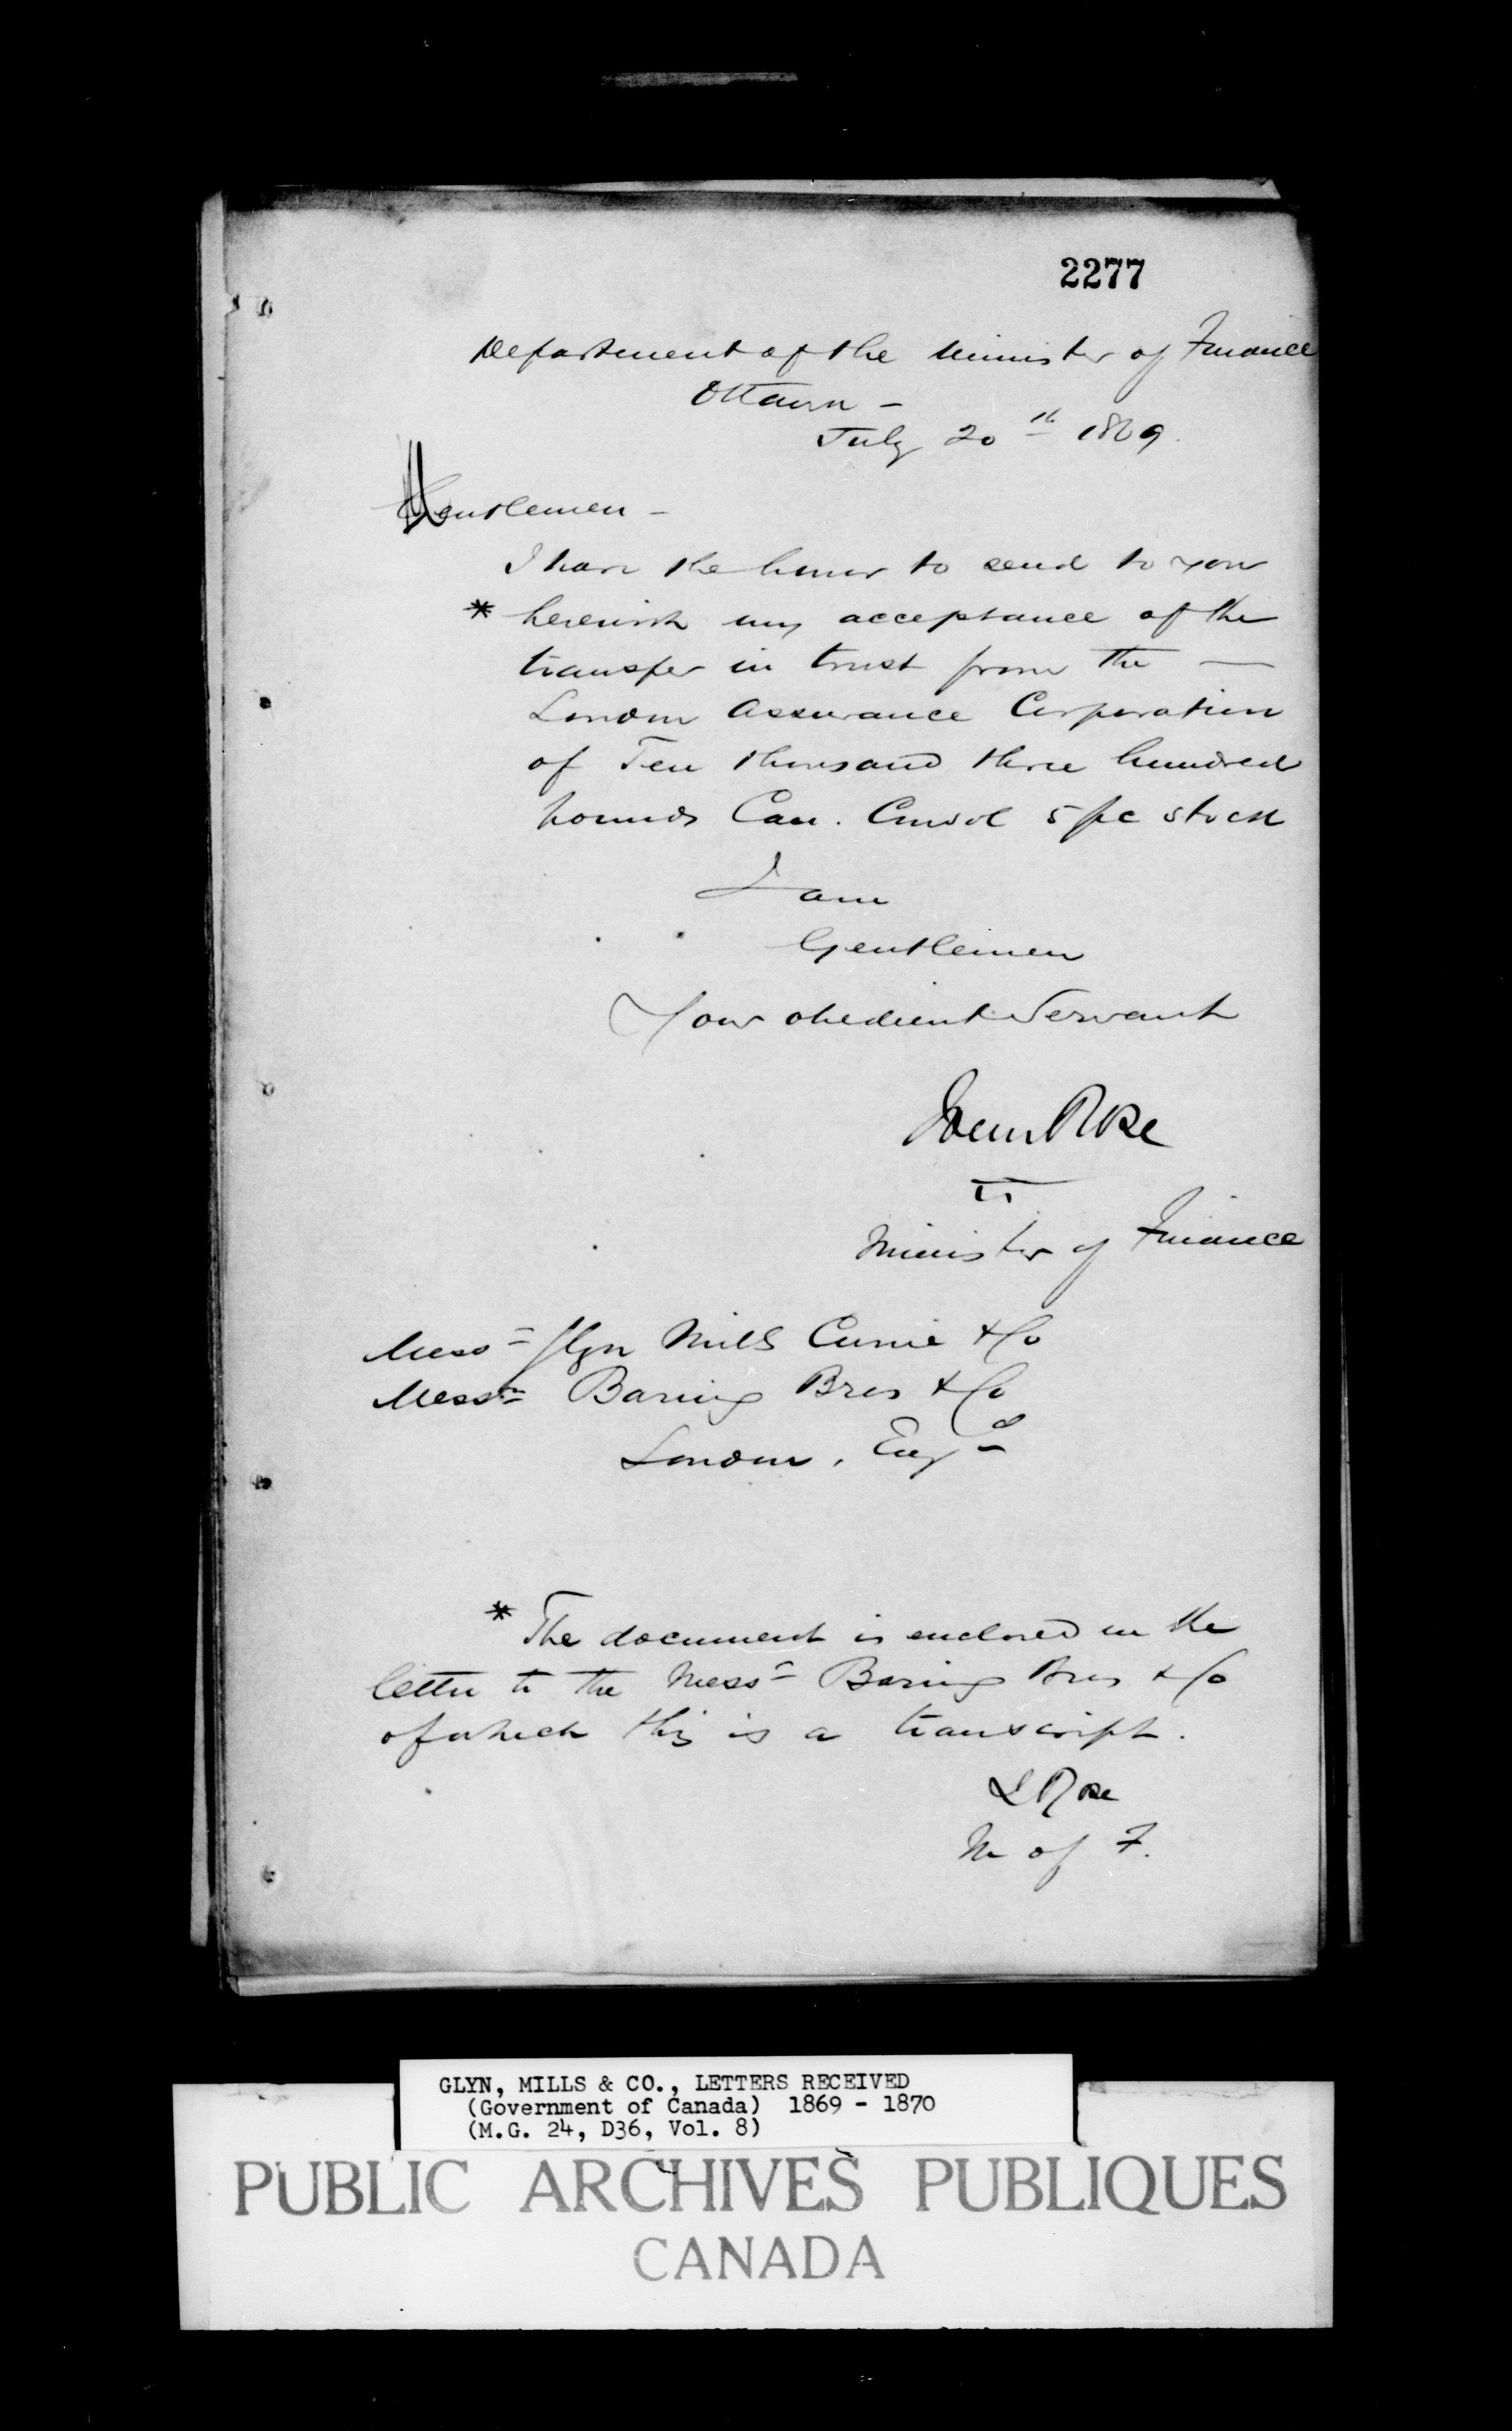 2277
Department of the Minister of Finance
Ottawa -
July 20th 1869.
Gentlemen -
I have the honor to send to you
* herewith my acceptance of the
transfer in trust from the —
London Assurance Corporation
of Ten thousand three hundred
pounds Can. Consol 5 pc stock
I am
Gentlemen
Your obedient Servant
John Rose
Minister of Finance
Messrs Glyn Mills Currie & Co
Messrs Baring Bros & Co
London, Engd
* The document is enclosed in the
letter to the Messrs Baring Bros & Co
of which this is a transcript.
J Rose
M of F.
GLYN, MILLS & CO., LETTERS RECEIVED
(Government of Canada) 1869 - 1870
(M.G. 24, D36, Vol. 8)
PUBLIC ARCHIVES PUBLIQUES
CANADA